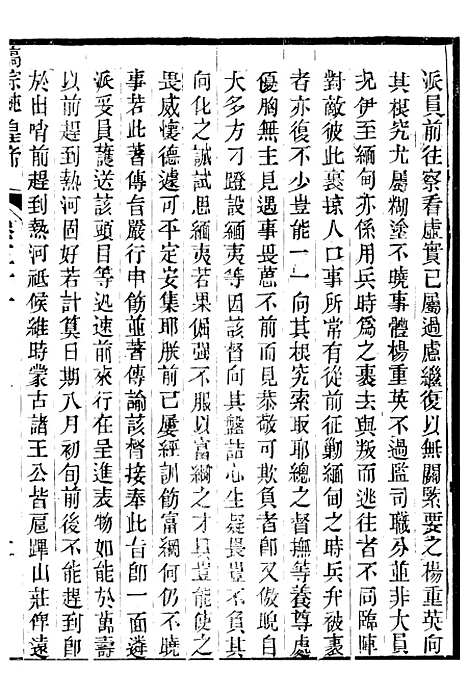 派員前往察看虛實已屬過慮繼復以無關緊要之楊重英向
其根究尤屬糊塗不曉事體楊重英不過監司職分並非大員
光伊至緬甸亦係用兵時為之裹去與叛而逃往者不同臨陣
對敵彼此裹掠人口事所常有從前征勦緬甸之時兵弁被裹
者亦復不少豈能一一向其究索取耶總之督撫等養尊處
優胸無主見遇事畏葸不前見恭敬可欺負者卽又傲睨自
大多方刁蹬設緬夷等因該督向其盤詰心生疑畏豈不負其
向化之誠試思緬夷若果倔強不服以富綱之才具豈能使之
畏威懷德遽可平定安集耶朕前已屢經訓飭富綱何仍不曉
事若此著傳旨嚴行申飭並著傳諭該督接奉此旨卽一面遴
派妥員護送該頭目等迅速前來行在呈進表物如能於萬壽
以前趕到熱河固好若計算日期八月初旬前後不能趕到卽
於出哨前趕到熱河祗候維時蒙古諸王公皆扈蹕山莊俾遠
高宗純皇帝